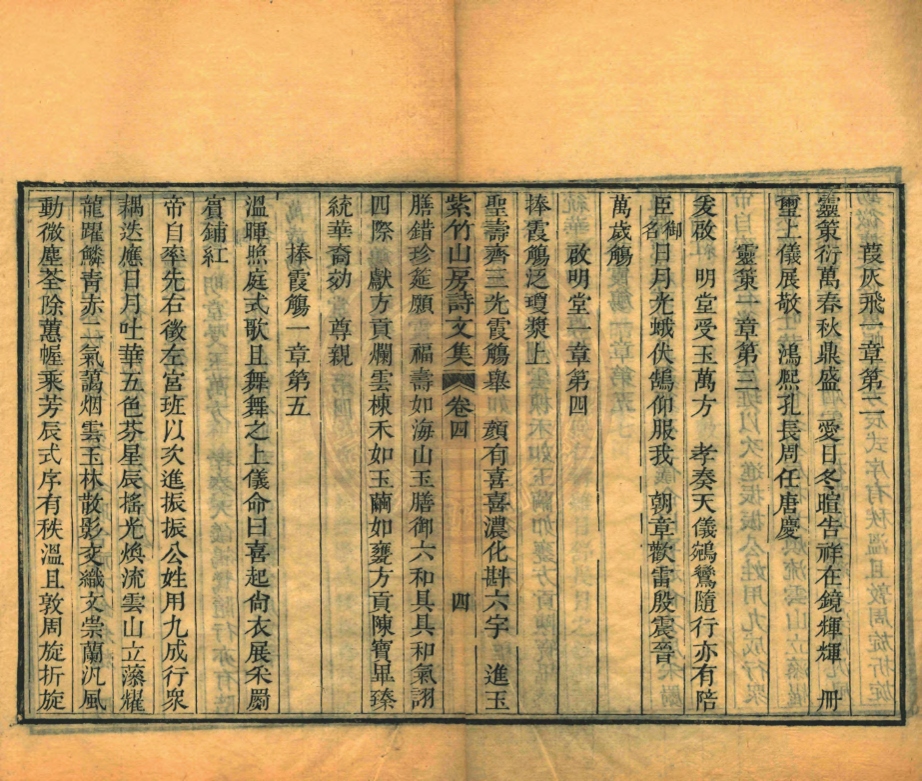 葭灰飛一章第二
靈策衍萬春秋鼎盛 愛日冬暄告祥在鏡輝輝 冊
璽上儀展敬 鴻熙孔長周任唐慶
靈策一章第三
爰啟 明堂受玉萬方 孝奏天儀鵷鷺隨行亦有陪
臣御名日月光蛾伏鵠仰服我 朝章歡雷殷震晉
萬歲觴
啟明堂一章第四
捧霞觴泛瓊漿上
聖壽齊三光霞觴舉 顔有喜喜濃化斟六字 進玉
紫竹山房詩文集 卷四 四
膳錯珍筵願 福壽如海山玉膳御六和具具和氣詡
四際 獻方貢爛雲棟禾如玉繭如甕方貢陳寶畢臻
統華裔効 尊親
捧霞觴一章第五
溫暉照庭式歌且舞舞之上儀命曰喜起尙衣展釆罽
賓鋪紅
帝自率先右徵左宮班以次進振振公姓用九成行衆
耦迭應日月吐華五色芬星辰搖光煥流雲山立藻耀
龍躍鱗靑赤二氣藹烟雲玉林散影交織文崇蘭汎風
動微塵荃除蕙幄乘芳辰式序有秩溫且敦周旋折旋